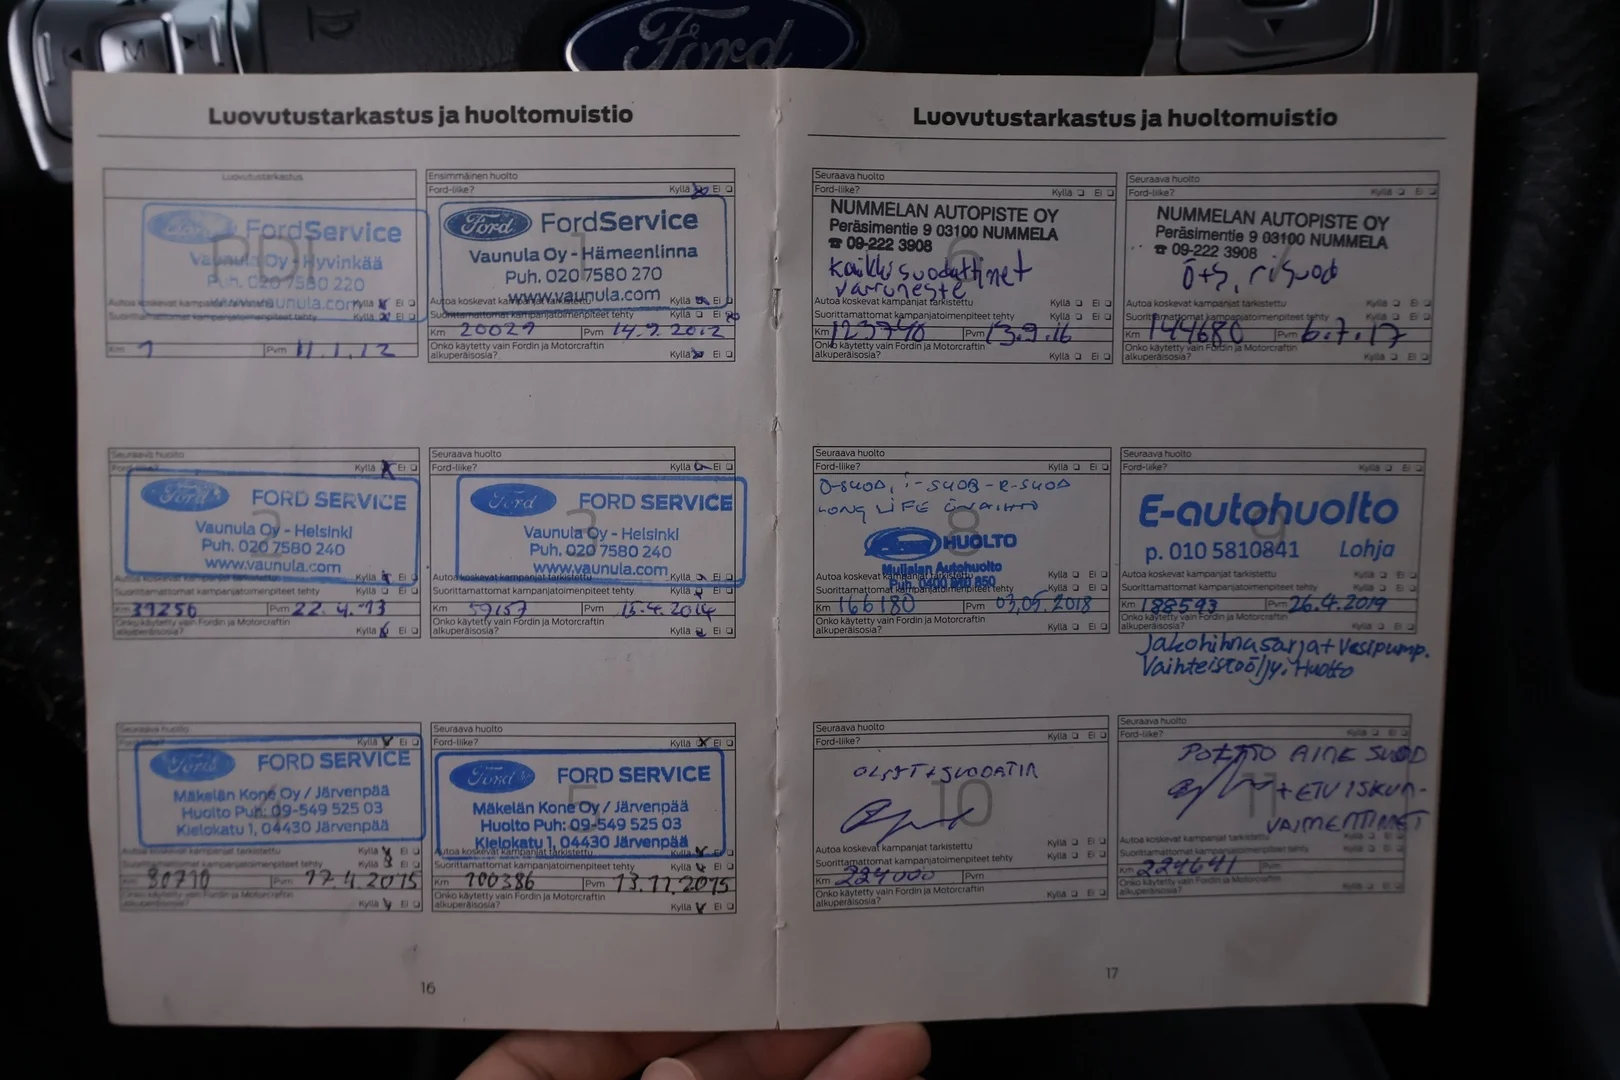 M
Ford
Luovutustarkastus ja huoltomuistio
Luovutustarkastus
Ford FordService
PDI
Vaunula Oy - Hyvinkää
Puh. 020 7580 220
www.vaunula.com
Autoa koskevat kampanjat tarkistettu Kyllä Ei
Suorittamattomat kampanjatoimenpiteet tehty Kyllä Ei
Km 1 Pvm 11.1.12
Ensimmäinen huolto
Ford-liike? Kyllä Ei
Ford FordService
1
Vaunula Oy - Hämeenlinna
Puh. 020 7580 270
www.vaunula.com
Autoa koskevat kampanjat tarkistettu Kyllä Ei
Suorittamattomat kampanjatoimenpiteet tehty Kyllä Ei
Km 20029 Pvm 14.9.2012
Onko käytetty vain Fordin ja Motorcraftin
alkuperäisosia? Kyllä Ei
Seuraava huolto
Ford-liike? Kyllä Ei
Ford FORD SERVICE
2
Vaunula Oy - Helsinki
Puh. 020 7580 240
www.vaunula.com
Autoa koskevat kampanjat tarkistettu Kyllä Ei
Suorittamattomat kampanjatoimenpiteet tehty Kyllä Ei
Km 39256 Pvm 22.4.-13
Onko käytetty vain Fordin ja Motorcraftin
alkuperäisosia? Kyllä Ei
Seuraava huolto
Ford-liike? Kyllä Ei
Ford FORD SERVICE
3
Vaunula Oy - Helsinki
Puh. 020 7580 240
www.vaunula.com
Autoa koskevat kampanjat tarkistettu Kyllä Ei
Suorittamattomat kampanjatoimenpiteet tehty Kyllä Ei
Km 59157 Pvm 15.4.2014
Onko käytetty vain Fordin ja Motorcraftin
alkuperäisosia? Kyllä Ei
Seuraava huolto
Ford-liike? Kyllä Ei
Ford FORD SERVICE
4
Mäkelän Kone Oy / Järvenpää
Huolto Puh: 09-549 525 03
Kielokatu 1, 04430 Järvenpää
Autoa koskevat kampanjat tarkistettu Kyllä Ei
Suorittamattomat kampanjatoimenpiteet tehty Kyllä Ei
Km 80710 Pvm 17.4.2015
Onko käytetty vain Fordin ja Motorcraftin
alkuperäisosia? Kyllä Ei
Seuraava huolto
Ford-liike? Kyllä Ei
Ford FORD SERVICE
5
Mäkelän Kone Oy / Järvenpää
Huolto Puh: 09-549 525 03
Kielokatu 1, 04430 Järvenpää
Autoa koskevat kampanjat tarkistettu Kyllä Ei
Suorittamattomat kampanjatoimenpiteet tehty Kyllä Ei
Km 100386 Pvm 13.11.2015
Onko käytetty vain Fordin ja Motorcraftin
alkuperäisosia? Kyllä Ei
16
Luovutustarkastus ja huoltomuistio
Seuraava huolto
Ford-liike? Kyllä Ei
NUMMELAN AUTOPISTE OY
Peräsimentie 9 03100 NUMMELA
☎ 09-222 3908
6
Kaikki suodattimet
Jarruneste
Autoa koskevat kampanjat tarkistettu Kyllä Ei
Suorittamattomat kampanjatoimenpiteet tehty Kyllä Ei
Km 123740 Pvm 13.9.16
Onko käytetty vain Fordin ja Motorcraftin
alkuperäisosia? Kyllä Ei
Seuraava huolto
Ford-liike? Kyllä Ei
NUMMELAN AUTOPISTE OY
Peräsimentie 9 03100 NUMMELA
☎ 09-222 3908
Ö+S, risuod
Autoa koskevat kampanjat tarkistettu Kyllä Ei
Suorittamattomat kampanjatoimenpiteet tehty Kyllä Ei
Km 144680 Pvm 6.7.17
Onko käytetty vain Fordin ja Motorcraftin
alkuperäisosia? Kyllä Ei
Seuraava huolto
Ford-liike? Kyllä Ei
Ö-SUOD, i-SUOD-R-SUOD
LONG LIFE ÖVAIHTO
8
HUOLTO
Mulialan Autohuolto
Autoa koskevat kampanjat tarkistettu Kyllä Ei
Suorittamattomat kampanjatoimenpiteet tehty Kyllä Ei
Km 166180 Pvm 03,05,2018
Onko käytetty vain Fordin ja Motorcraftin
alkuperäisosia? Kyllä Ei
Seuraava huolto
Ford-liike? Kyllä Ei
E-autohuolto
9
p. 010 5810841 Lohja
Autoa koskevat kampanjat tarkistettu Kyllä Ei
Suorittamattomat kampanjatoimenpiteet tehty Kyllä Ei
Km 188593 Pvm 26.4.2019
Onko käytetty vain Fordin ja Motorcraftin
alkuperäisosia? Kyllä Ei
Jakohihnasarja+Vesipump.
Vaihteistoöljy. Huolto
Seuraava huolto
Ford-liike? Kyllä Ei
ÖLJYT+SUODATIN
10
Autoa koskevat kampanjat tarkistettu Kyllä Ei
Suorittamattomat kampanjatoimenpiteet tehty Kyllä Ei
Km 224000 Pvm
Onko käytetty vain Fordin ja Motorcraftin
alkuperäisosia? Kyllä Ei
Seuraava huolto
Ford-liike? Kyllä Ei
POLTTO AINE SUOD
11
+ ETU ISKUN-
VAIMENTIMET
Autoa koskevat kampanjat tarkistettu Kyllä Ei
Suorittamattomat kampanjatoimenpiteet tehty Kyllä Ei
Km 224641 Pvm
Onko käytetty vain Fordin ja Motorcraftin
alkuperäisosia? Kyllä Ei
17